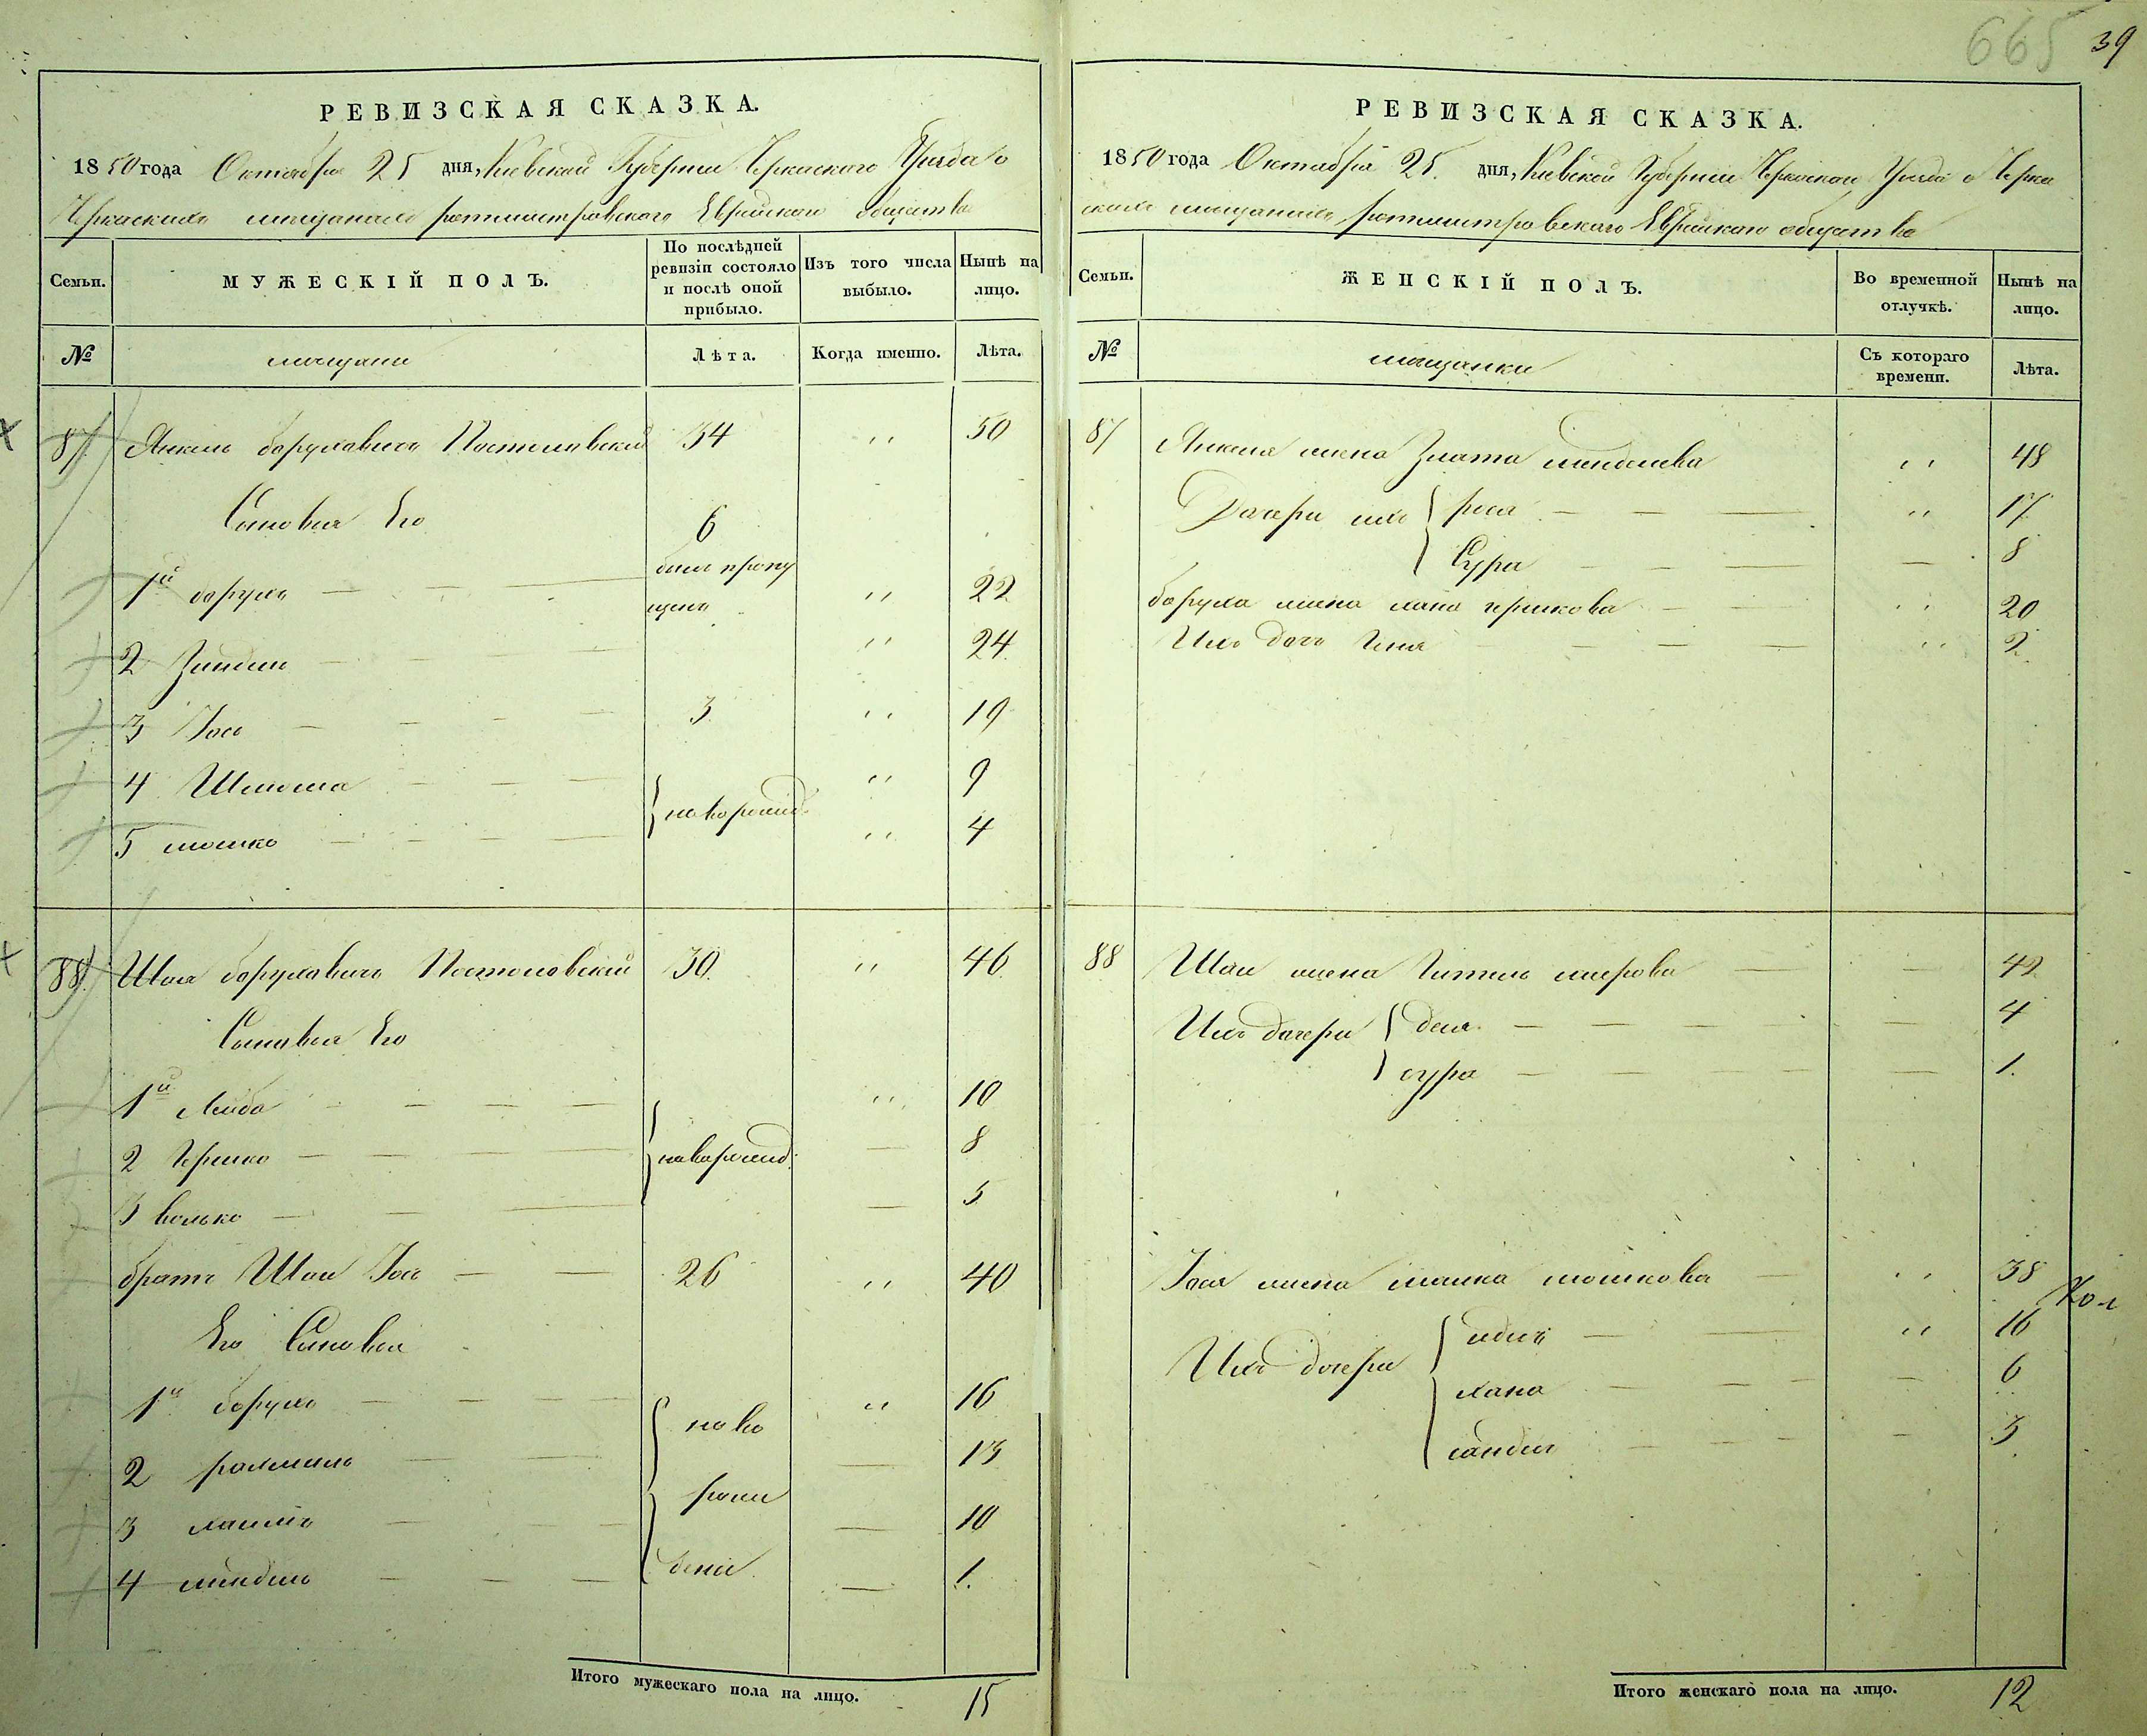 665 39
РЕВИЗСКАЯ СКАЗКА.
1850 года Октября 25 дня, Киевской Губернии Черкаского Уезда о
Черкаскихъ мещанахъ ротмистровского Еврейского общества
Семьи.
МУЖЕСКІЙ ПОЛЪ.
По послѣдней ревизіи состояло и послѣ оной прибыло.
Изъ того числа выбыло.
Нынѣ на лицо.
№ мещани Лѣта. Когда именно. Лѣта.
87 Янкель борухович Постоловский 34 " 50
Сыновья Его 6
1й борухъ был пропущенъ " 22
2 Зиндель " 24
3 Іось 3 " 19
4 Шлиома " 9
новорожд.
5 мошко " 4
88 Шая борухович Постоловский 30 " 46
Сыновья Его
1й Лейба " 10
2 Гершко новорожд. — 8
3 волько — 5
братъ Шаи Іось 26 " 40
Его Сыновья
1й борухъ " 16
ново
2 рахмиль — 13
рож
3 хаимъ — 10
дени
4 мендель — 1.
Итого мужескаго пола на лицо. 15
РЕВИЗСКАЯ СКАЗКА.
1850 года Октября 25 дня, Киевской Губернии Черкаскои Уезда о Черка
скихъ мещанахъ ротмистровского Еврейского общества
Семьи.
ЖЕНСКІЙ ПОЛЪ.
Во временной отлучкѣ.
Нынѣ на лицо.
№ мещанки Съ котораго времени. Лѣта.
87 Янкеля жена Злата менделева " 48
Дочери ихъ рося " 17
Сура — 8
боруха жена хана гершкова " 20
Ихъ дочь Геня " 2
88 Шаи жена Гитель меерова — 42
Ихъ дочери двося — 4
сура — 1.
Іося жена малка мошкова " 38
" 16
Ихъ дочери
хана — 6
— 3
Итого женскаго пола на лицо. 12